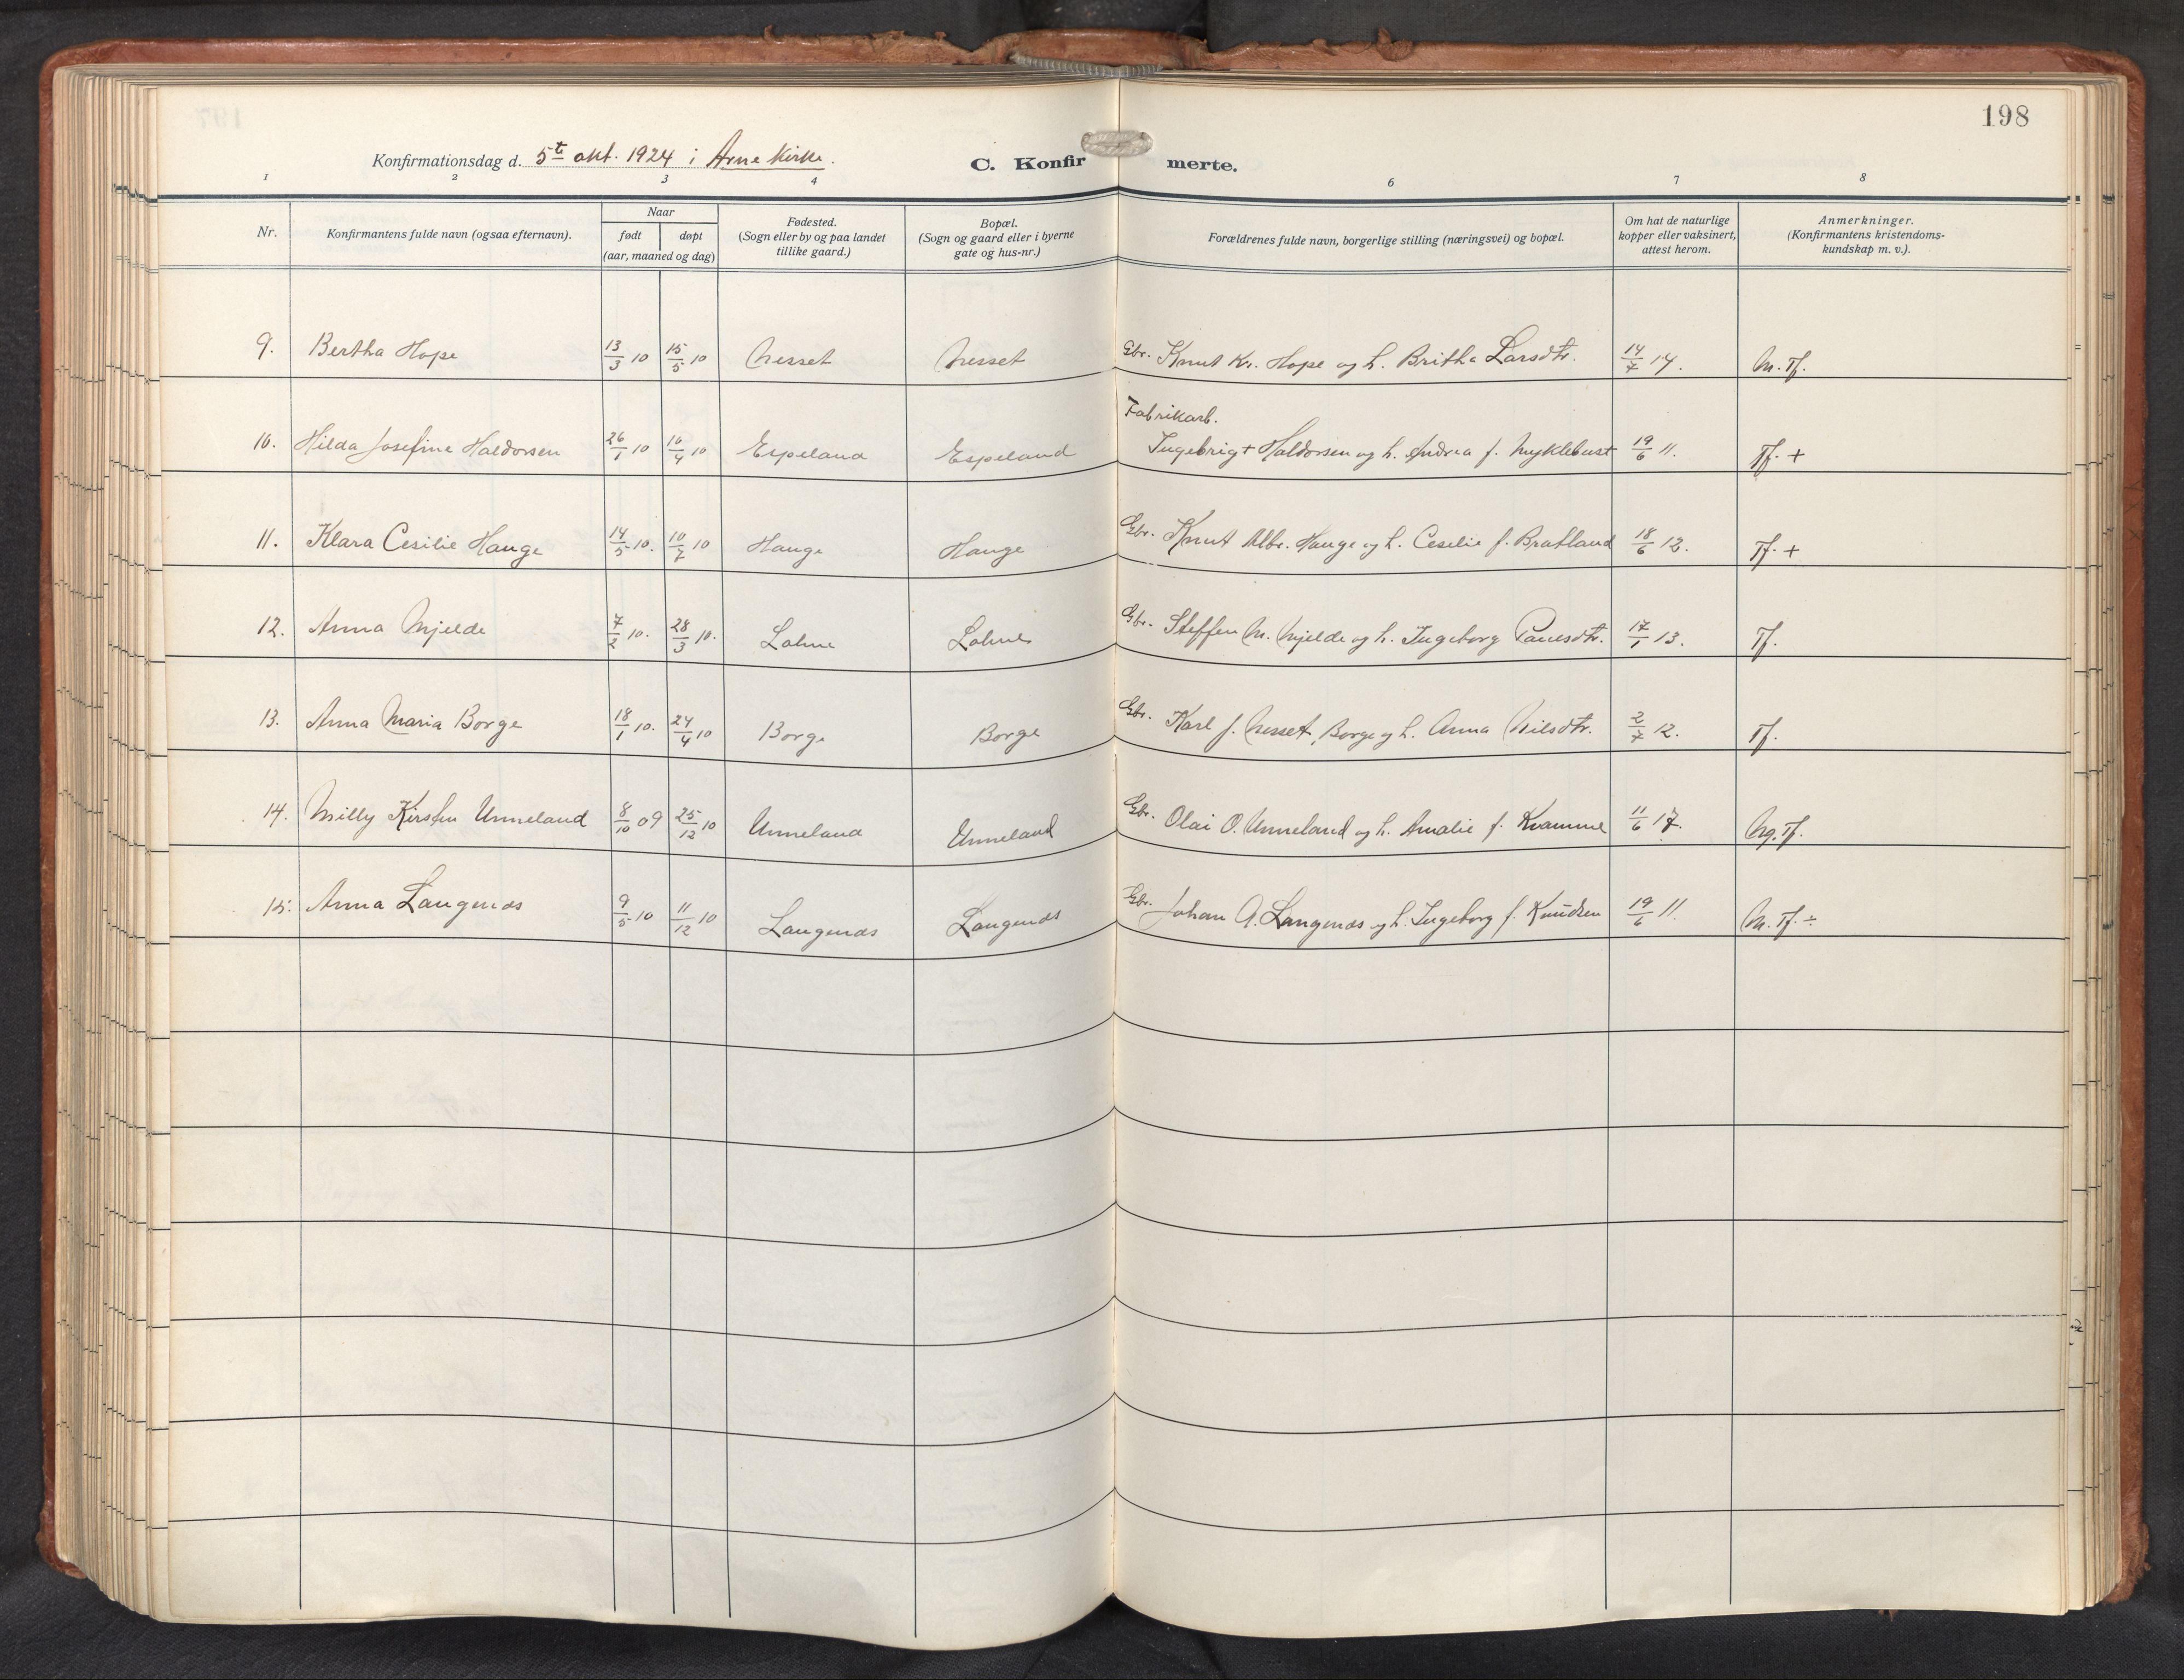 198
Konfirmationsdag d. 5te okt. 1924 i Arne Kirke.
C. Konfirmerte.
1 2 3 4 6 7 8
Nr.
Konfirmantens fulde navn (ogsaa efternavn).
Naar
født døpt
(aar, maaned og dag)
Fødested.
(Sogn eller by og paa landet
tillike gaard.)
Bopæl.
(Sogn og gaard eller i byerne
gate og hus-nr.)
Forældrenes fulde navn, borgerlige stilling (næringsvei) og bopæl.
Om hat de naturlige
kopper eller vaksinert,
attest herom.
Anmerkninger.
(Konfirmantens kristendoms-
kundskap m. v.).
9. Bertha Hope 13/3 10 15/5 10 Nesset Nesset Gbr. Knut Kr. Hope og h. Britha Larsdtr. 14/7 14. M. Tf.
Fabrikarb.
10. Hilda Josefine Haldorsen 26/1 10 10/4 10 Espeland Espeland Ingebrigt Haldorsen og h. Andrea f. Myklebust 19/6 11. Tf. +
11. Klara Cesilie Hauge 14/5 10. 10/7 10 Hauge Hauge Gbr. Knut Albr. Hauge og h. Cesilie f. Bratland 18/6 12. Tf. +
12. Anna Mjelde 7/2 10. 28/3 10. Lohne Lohne Gbr. Steffen M. Mjelde og h. Ingeborg Paulsdtr. 17/1 13. Tf.
13. Anna Maria Borge 18/1 10. 24/4 10 Borge Borge Gbr. Karl J. Nesset, Borge og h. Anna Nilsdtr. 2/7 12. Tf.
14. Milly Kirsten Unneland 8/10 09 25/12 10 Unneland Unneland Gbr. Olai O. Unneland og h. Amalie f. Kvamme 11/6 17. Mg. Tf.
15. Anna Langenes 9/5 10 11/12 10 Langenes Langenes Gbr. Johan A. Langenes og h. Ingeborg f. Knudsen 19/6 11. M. Tf. ÷